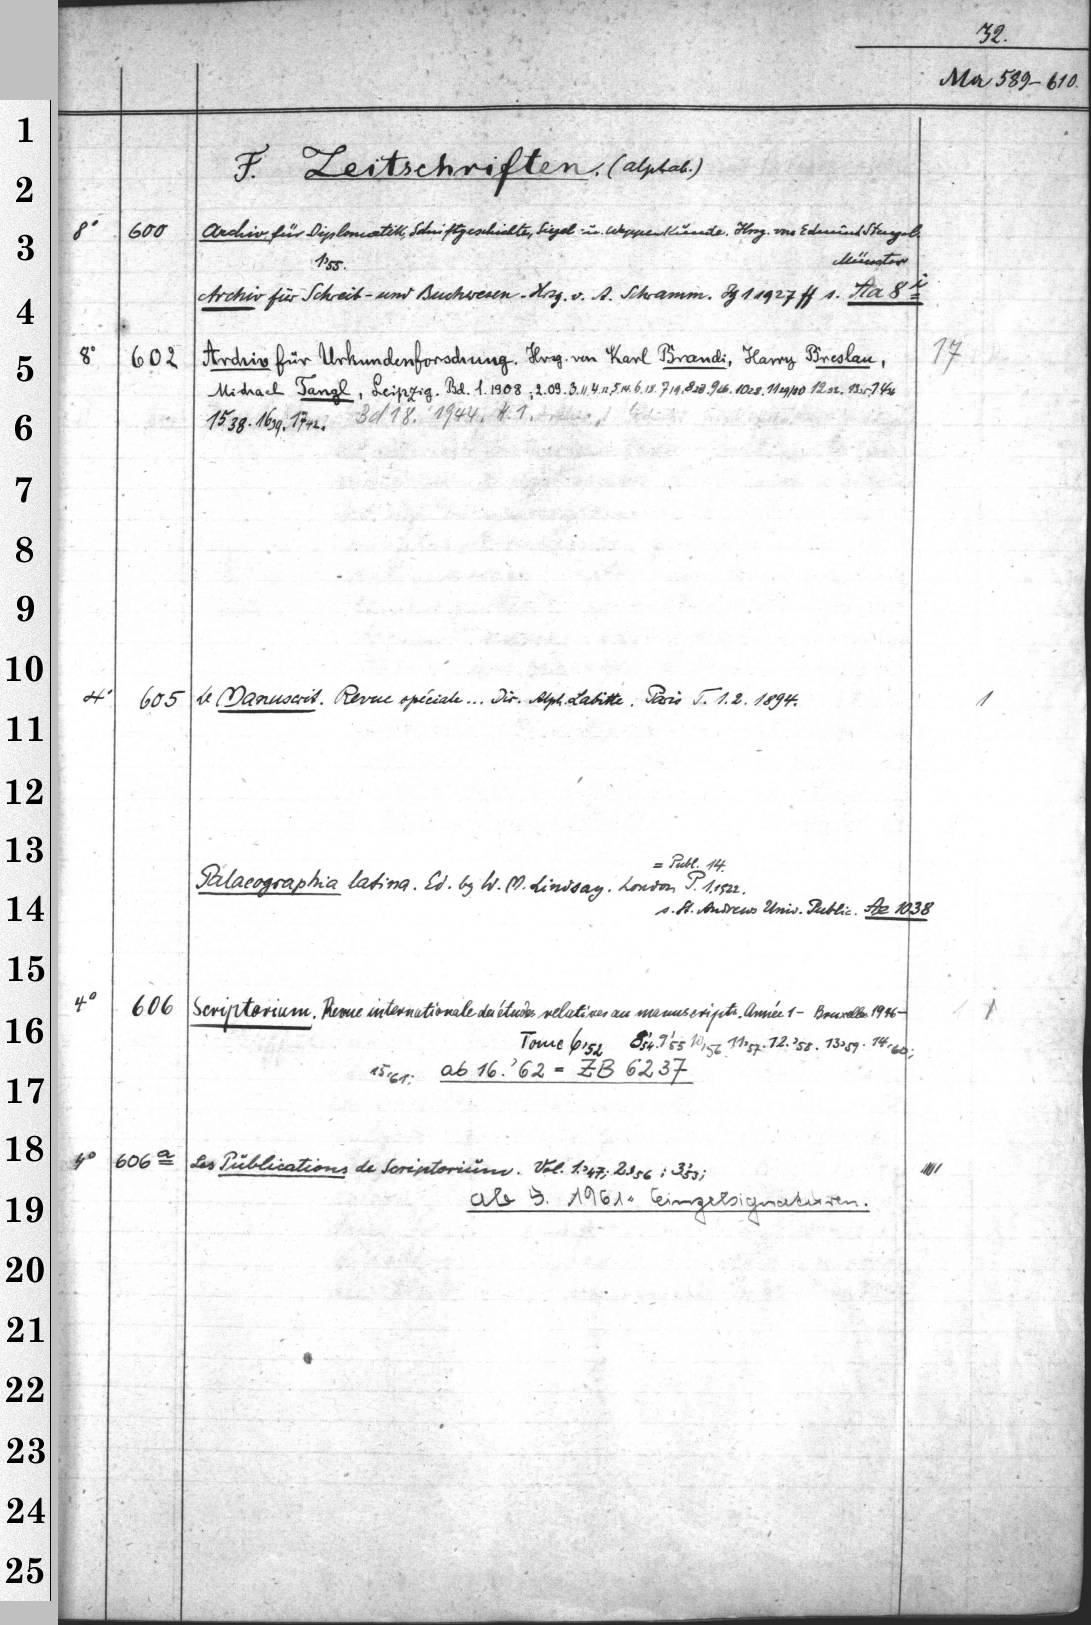 32.
Ma 589-610.
1
F. Zeitschriften. (alphab.)
2
8° 600 Archiv für Diplomatik, Schriftgeschichte, Siegel- u. Wappenkunde. Hrsg. von Edmund Stengel.
3
1'55. Münster
Archiv für Schreib- und Buchwesen. Hrsg. v. A. Schramm. Jg 1 1927 ff s. Aa 8
4
8° 602 Archiv für Urkundenforschung. Hrsg. von Karl Brandi, Harry Breslau, 17
5
Michael Tangl, Leipzig. Bd. 1. 1908; 2.09. 3.11 4.12 5.14. 6.18. 7.19. 8.23. 9.26. 10.28. 11.29/30 12.32. 13.35. 14.36
15 38. 16 39. 17 42. Bd 18. 1944. H. 1.
6
7
8
9
10
4° 605 Le Manuscrit. Revue spéciale ... Dir. Alph. Labitte. Paris T. 1.2. 1894. 1
11
12
13
= Publ. 14.
Palaeographia latina. Ed. by W. M. Lindsay. London P. 1.1922.
14
s. St. Andrews Univ. Public. Az 1038
15
4° 606 Scriptorium. Revue internationale des études relatives au manuscripts. Année 1- Bruxelles 1946-
16
Tome 6,'52 8'54. 9'55 10,'56 11,'57. 12.'58. 13,'59. 14,'60;
15,'61; ab 16.'62 = ZB 6237
17
18
4° 606 a Les Publications de Scriptorium. Vol. 1.'47; 2.'56; 3,'53;
19
ab 5. 1961. Einzelsignaturen.
20
21
22
23
24
25